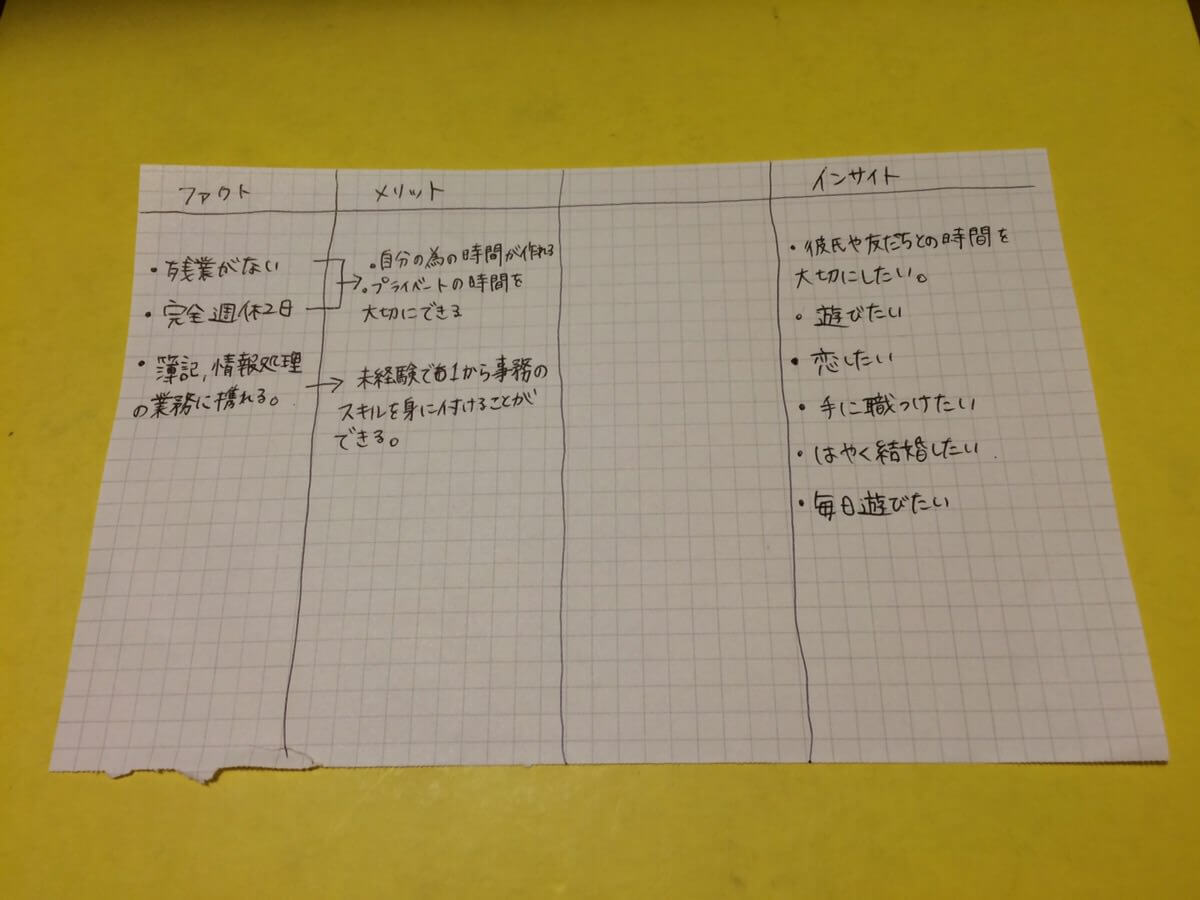 ファクト
メリット
インサイト
・残業がない
・完全週休2日
・簿記,情報処理
の業務に携れる。
・自分の為の時間が作れる
・プライベートの時間を
大切にできる
未経験でも1から事務の
スキルを身に付けることが
できる。
・彼氏や友だちとの時間を
大切にしたい。
・遊びたい
・恋したい
・手に職つけたい
・はやく結婚したい
・毎日遊びたい